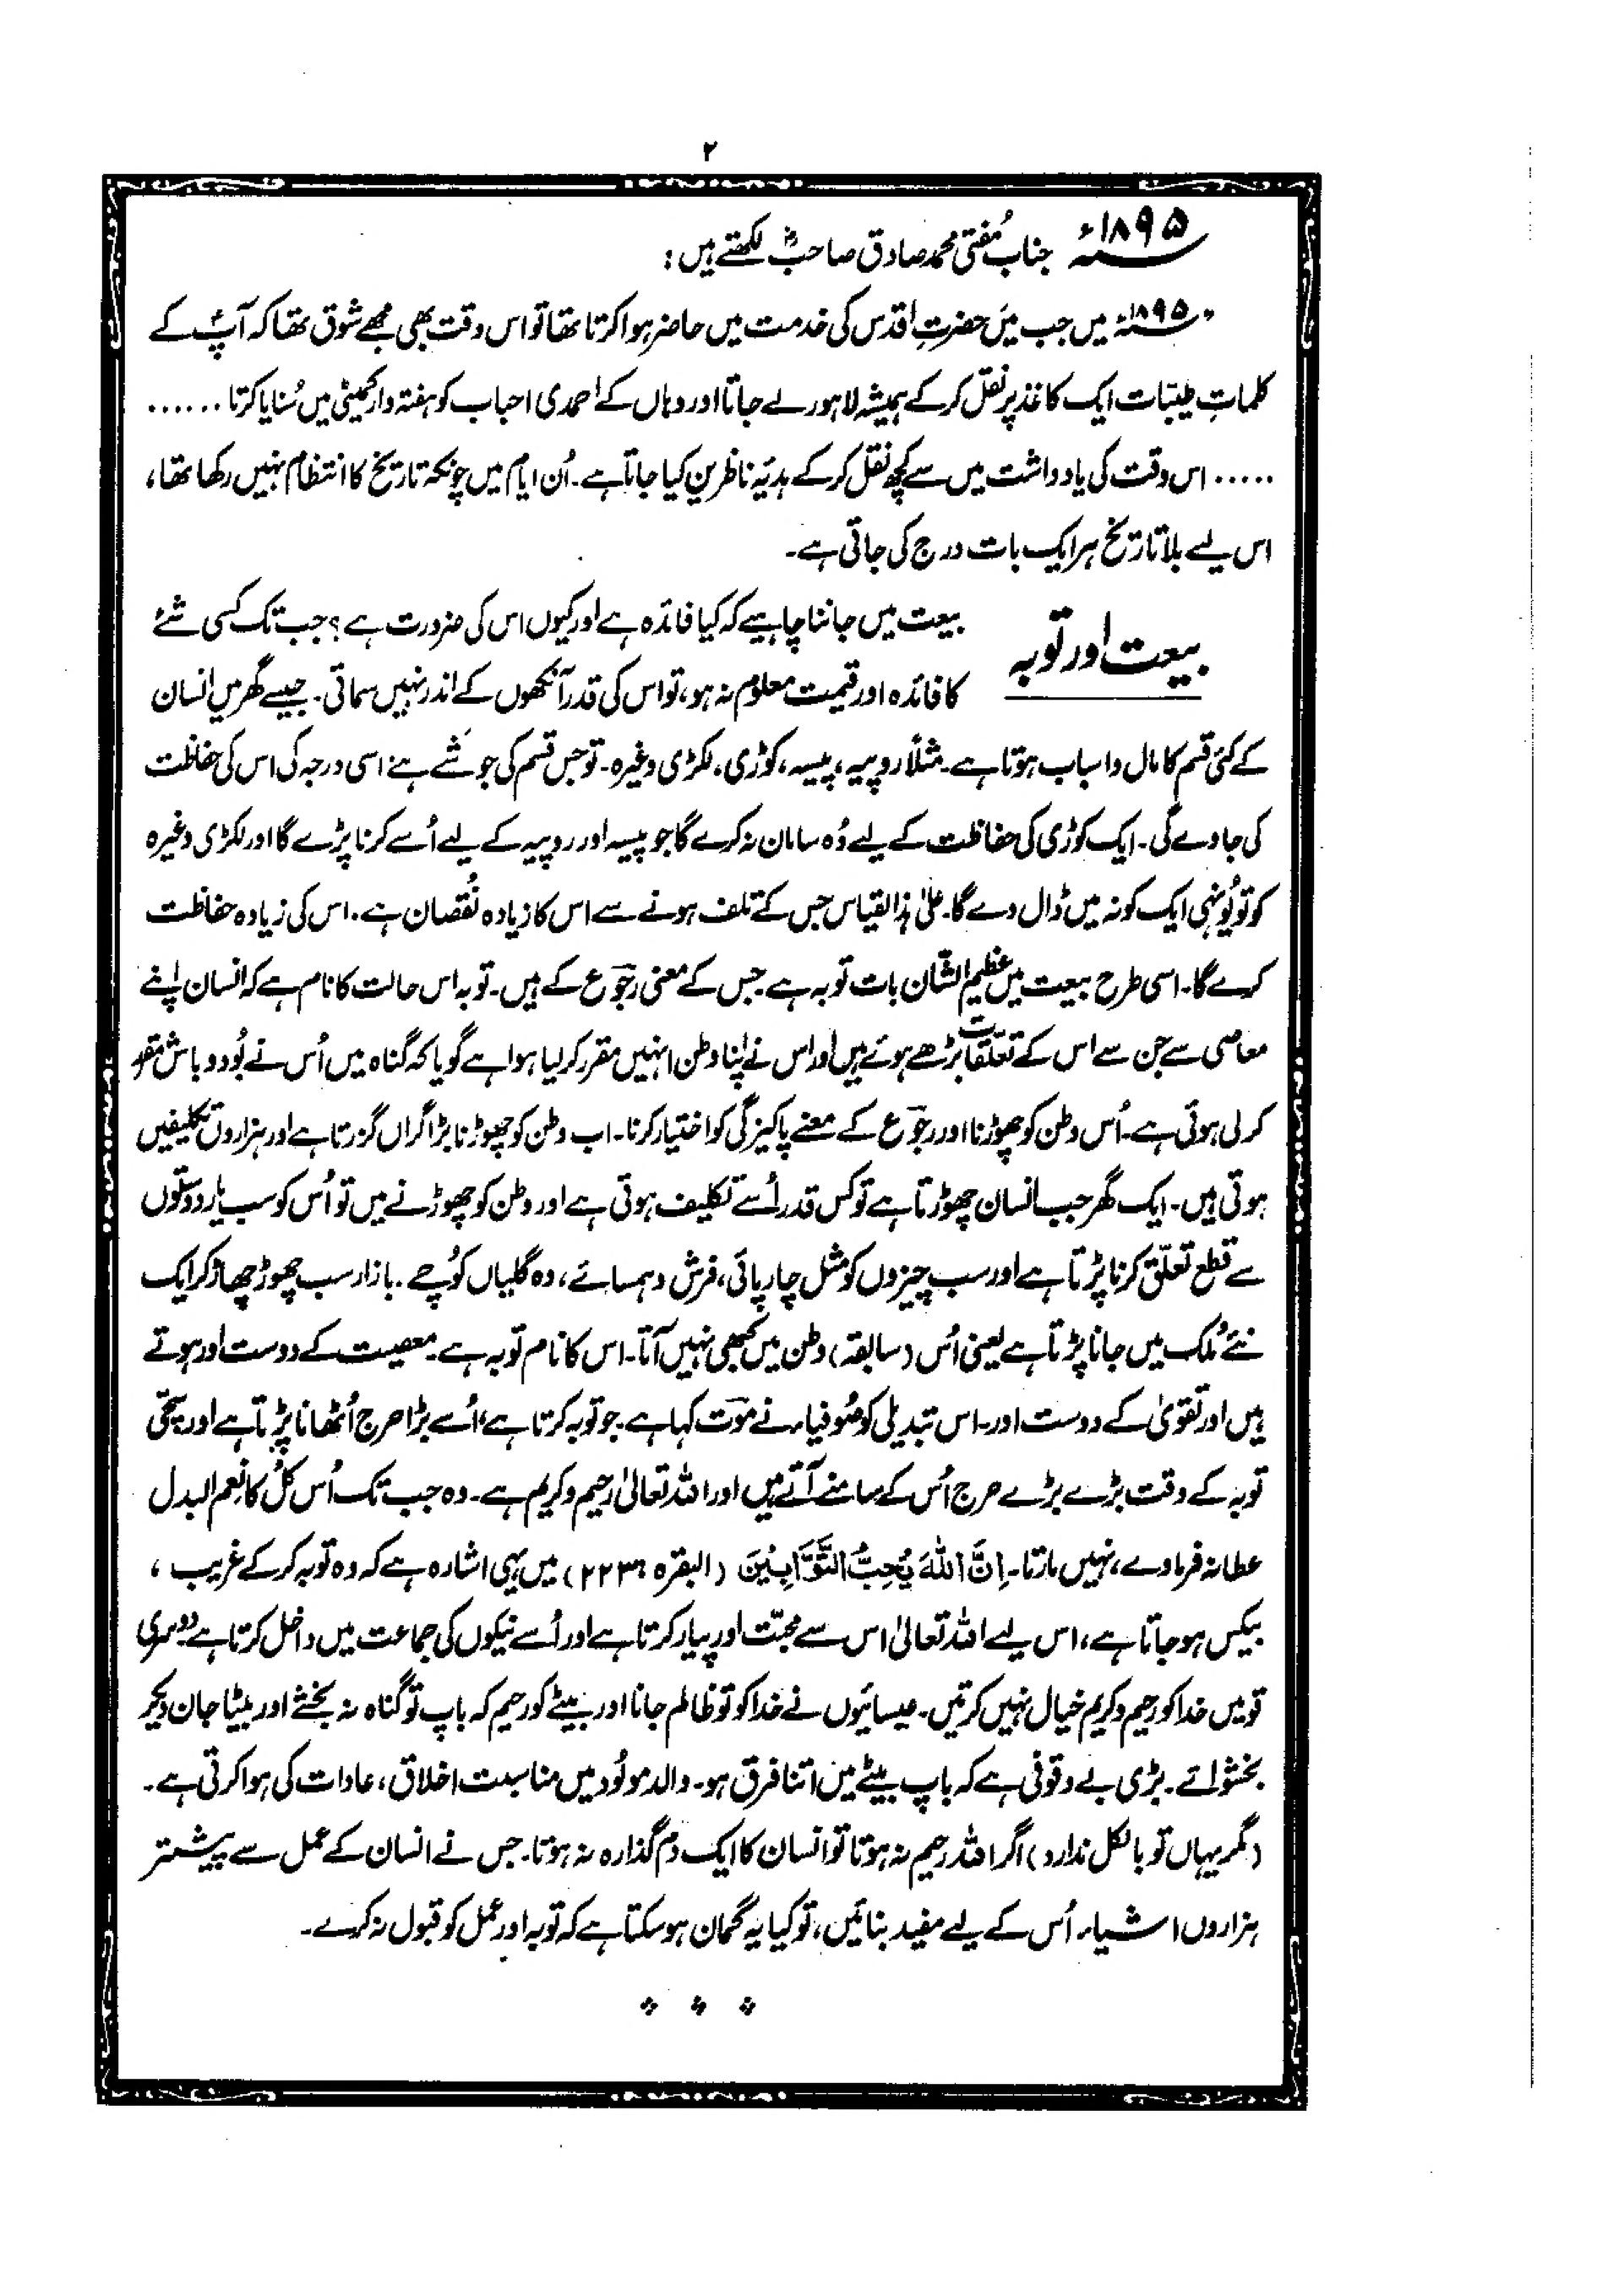 ۲
۱۸۹۵ء جناب مُفتی محمد صادق صاحبؓ لکھتے ہیں :
"۱۸۹۵ء میں جب میَں حضرتِ اقدس کی خدمت میں حاضر ہوا کرتا تھا تو اس وقت بھی مجھے شوق تھا کہ آپؑ کے
کلماتِ طیّبات ایک کاغذ پر نقل کر کے ہمیشہ لاہور لے جاتا اور وہاں کے احمدی احباب کو ہفتہ وار کمیٹی میں سُنایا کرتا ......
..... اس وقت کی یادداشت میں سے کچھ نقل کر کے ہدیۂ ناظرین کیا جاتا ہے۔ اُن ایام میں چونکہ تاریخ کا انتظام نہیں رکھا تھا،
اس لیے بلا تاریخ ہر ایک بات درج کی جاتی ہے۔
بیعت اور توبہ
بیعت میں جاننا چاہیے کہ کیا فائدہ ہے اور کیوں اس کی ضرورت ہے ؟ جب تک کسی شئے
کا فائدہ اور قیمت معلوم نہ ہو، تو اس کی قدر آنکھوں کے اندر نہیں سماتی۔ جیسے گھر میں انسان
کے کئی قسم کا مال و اسباب ہوتا ہے۔ مثلاً روپیہ، پیسہ، کوڑی، لکڑی وغیرہ۔ تو جس قسم کی جو شَے ہے، اسی درجہ کی اس کی حفاظت
کی جاوے گی۔ ایک کوڑی کی حفاظت کے لیے وُہ سامان نہ کرے گا جو پیسہ اور روپیہ کے لیے اُسے کرنا پڑے گا اور لکڑی وغیرہ
کو تو یُونہی ایک کونہ میں ڈال دے گا۔ علیٰ ہذا القیاس جس کے تلف ہونے سے اس کا زیادہ نُقصان ہے۔ اس کی زیادہ حفاظت
کرے گا۔ اسی طرح بیعت میں عظیم الشّان بات توبہ ہے جس کے معنی رجوع کے ہیں۔ توبہ اس حالت کا نام ہے کہ انسان اپنے
معاصی سے جن سے اس کے تعلّقات بڑھے ہوئے ہیں اور اس نے اپنا وطن انہیں مقرر کر لیا ہوا ہے گویا کہ گناہ میں اُس نے بُود و باش مقرر
کر لی ہوئی ہے۔ اُس وطن کو چھوڑنا اور رجوع کے معنے پاکیزگی کو اختیار کرنا۔ اب وطن کو چھوڑنا بڑا گراں گزرتا ہے اور ہزاروں تکلیفیں
ہوتی ہیں۔ ایک گھر جب انسان چھوڑتا ہے تو کس قدر اُسے تکلیف ہوتی ہے اور وطن کو چھوڑنے میں تو اُس کو سب یار دوستوں
سے قطع تعلّق کرنا پڑتا ہے اور سب چیزوں کو مثل چارپائی، فرش و ہمسائے، وہ گلیاں کُوچے۔ بازار سب چھوڑ چھاڑ کر ایک
نئے مُلک میں جانا پڑتا ہے یعنی اُس (سابقہ) وطن میں کبھی نہیں آتا۔ اس کا نام توبہ ہے۔ معصیت کے دوست اور ہوتے
ہیں اور تقویٰ کے دوست اور۔ اس تبدیلی کو صُوفیاء نے موت کہا ہے۔ جو توبہ کرتا ہے، اُسے بڑا حرج اُٹھانا پڑتا ہے اور سچّی
توبہ کے وقت بڑے بڑے حرج اُس کے سامنے آتے ہیں اور اللہ تعالیٰ رحیم و کریم ہے۔ وہ جب تک اُس کُل کا نعم البدل
عطا نہ فرماوے، نہیں مارتا۔ اِنَّ اللّٰهَ یُحِبُّ التَّوَّابِیْنَ (البقرہ : ۲۲۳) میں یہی اشارہ ہے کہ وہ توبہ کر کے غریب ،
بیکس ہو جاتا ہے، اس لیے اللہ تعالیٰ اس سے محبّت اور پیار کرتا ہے اور اُسے نیکوں کی جماعت میں داخل کرتا ہے دوسری
قومیں خدا کو رحیم و کریم خیال نہیں کرتیں۔ عیسائیوں نے خدا کو تو ظالم جانا اور بیٹے کو رحیم کہ باپ تو گناہ نہ بخشے اور بیٹا جان دیکر
بخشوائے۔ بڑی بے وقوفی ہے کہ باپ بیٹے میں اتنا فرق ہو۔ والد مولُود میں مناسبت اخلاق، عادات کی ہوا کرتی ہے۔
(مگر یہاں تو بالکل ندارد) اگر اللہ رحیم نہ ہوتا تو انسان کا ایک دم گذارہ نہ ہوتا۔ جس نے انسان کے عمل سے پیشتر
ہزاروں اشیاء اُس کے لیے مفید بنائیں، تو کیا یہ گمان ہو سکتا ہے کہ توبہ اور عمل کو قبول نہ کرے۔